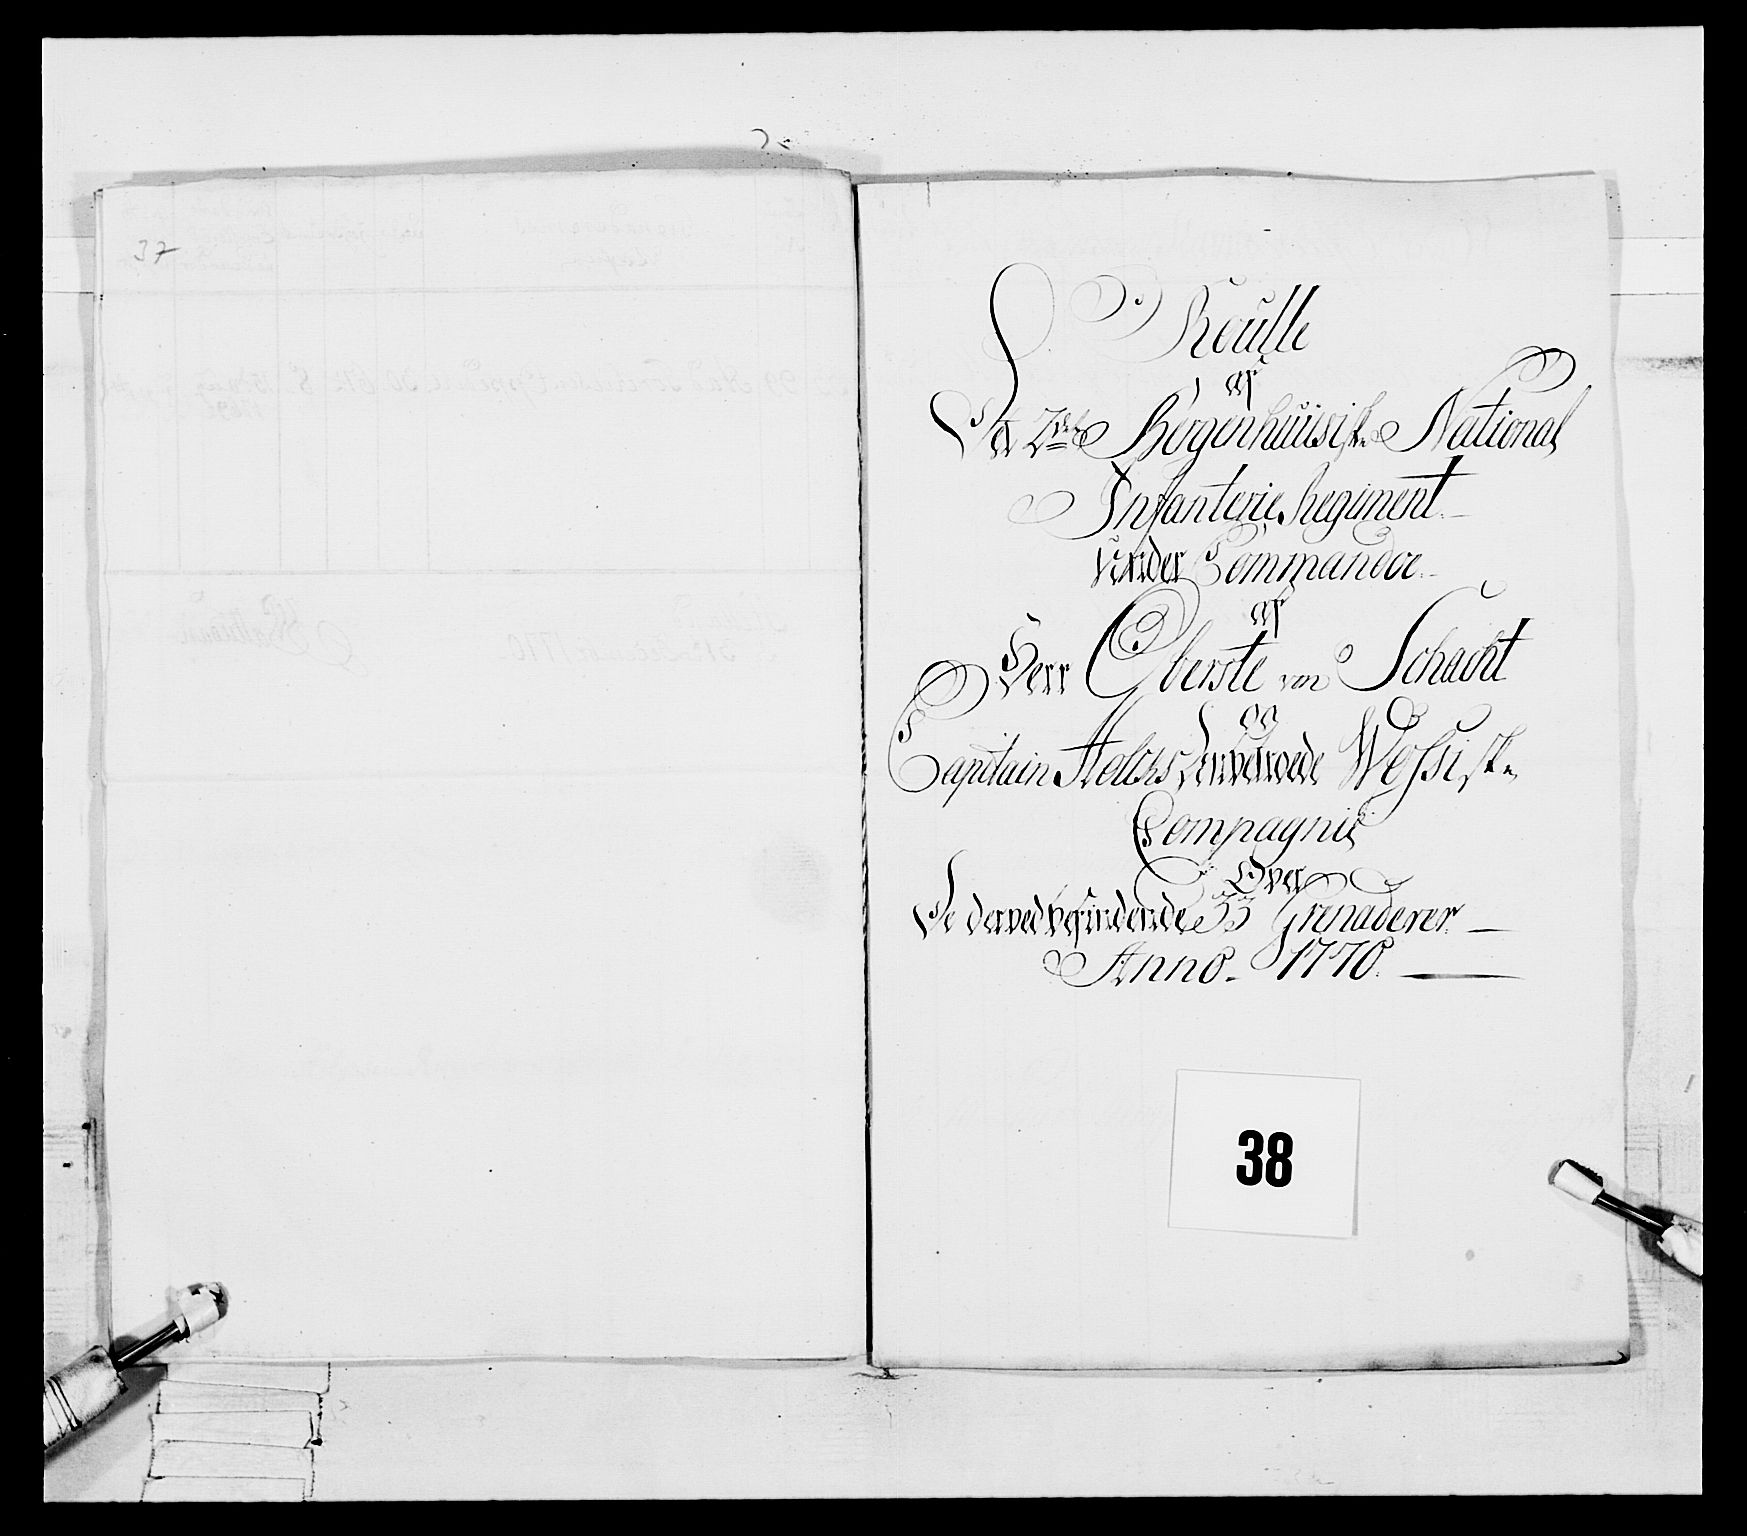 37
Roulle
af
Det 2det Bergenhuusiske National
Infanterie Regiment.
under Commandoe.
af
Herr Oberste von Schacht
og
Capitain Helchs Henværede Wessiske
Compagnie
Over
De derved befindende 33 Grenaderer.
Anno. 1770.
38